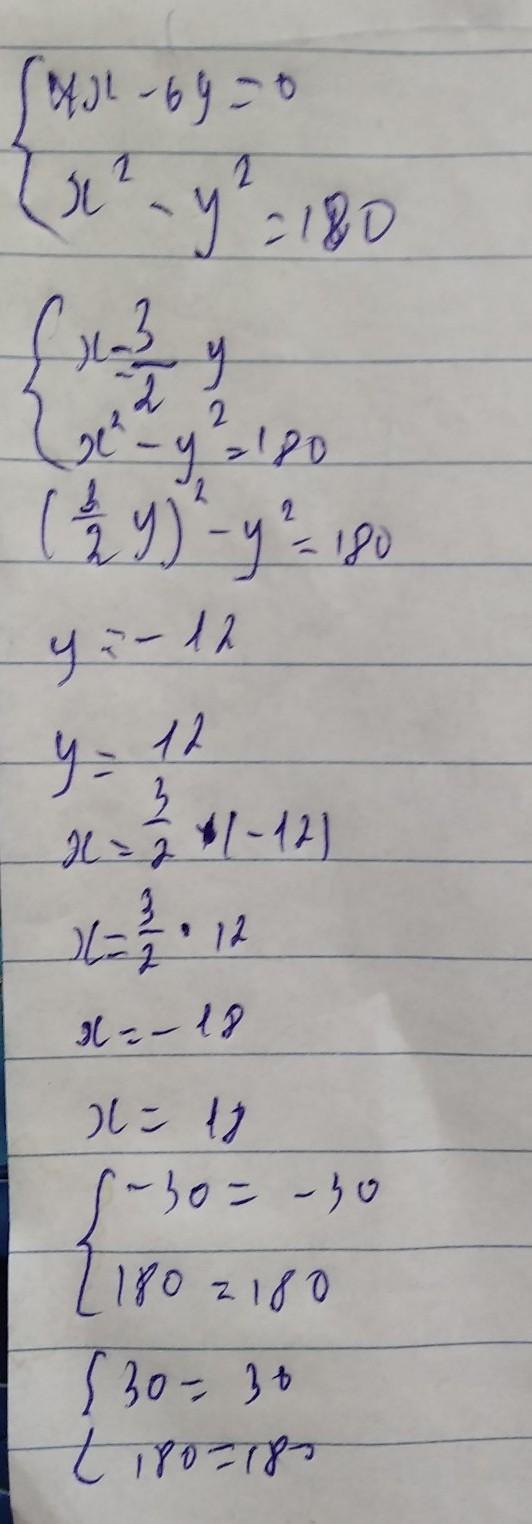 4x - 6y = 0
x² - y² = 180
x = 3/2 y
x² - y² = 180
(3/2 y)² - y² = 180
y = - 12
y = 12
x = 3/2 · (-12)
x = 3/2 · 12
x = - 18
x = 18
-30 = -30
180 = 180
30 = 30
180 = 180